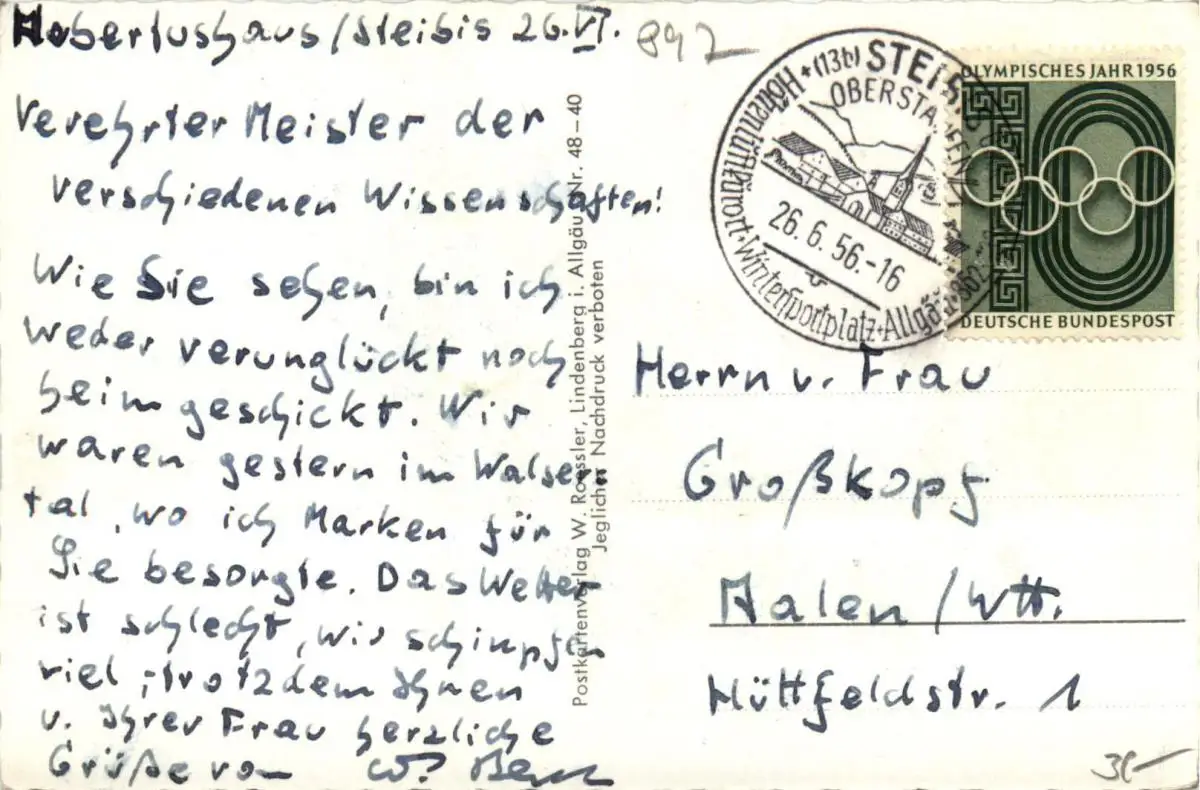 Hubertushaus/Steibis 26.VI.
892
Verehrter Meister der
verschiedenen Wissenschaften!
Wie Sie sehen, bin ich
weder verunglückt noch
heimgeschickt. Wir
waren gestern im Walser
tal, wo ich Marken für
Sie besorgte. Das Wetter
ist schlecht, wir schimpfen
viel, trotzdem Ihnen
u. Ihrer Frau herzliche
Grüße von W.
Postkartenverlag W. Roessler, Lindenberg i. Allgäu Nr. 48-40
Jeglicher Nachdruck verboten
(13b) STEIBIS
OBERSTAUFEN
Höhenluftkurort · Wintersportplatz · Allgäu
26.6.56.-16
OLYMPISCHES JAHR 1956
DEUTSCHE BUNDESPOST
Herrn u. Frau
Großkopf
Aalen/Wtt.
Hüttfeldstr. 1